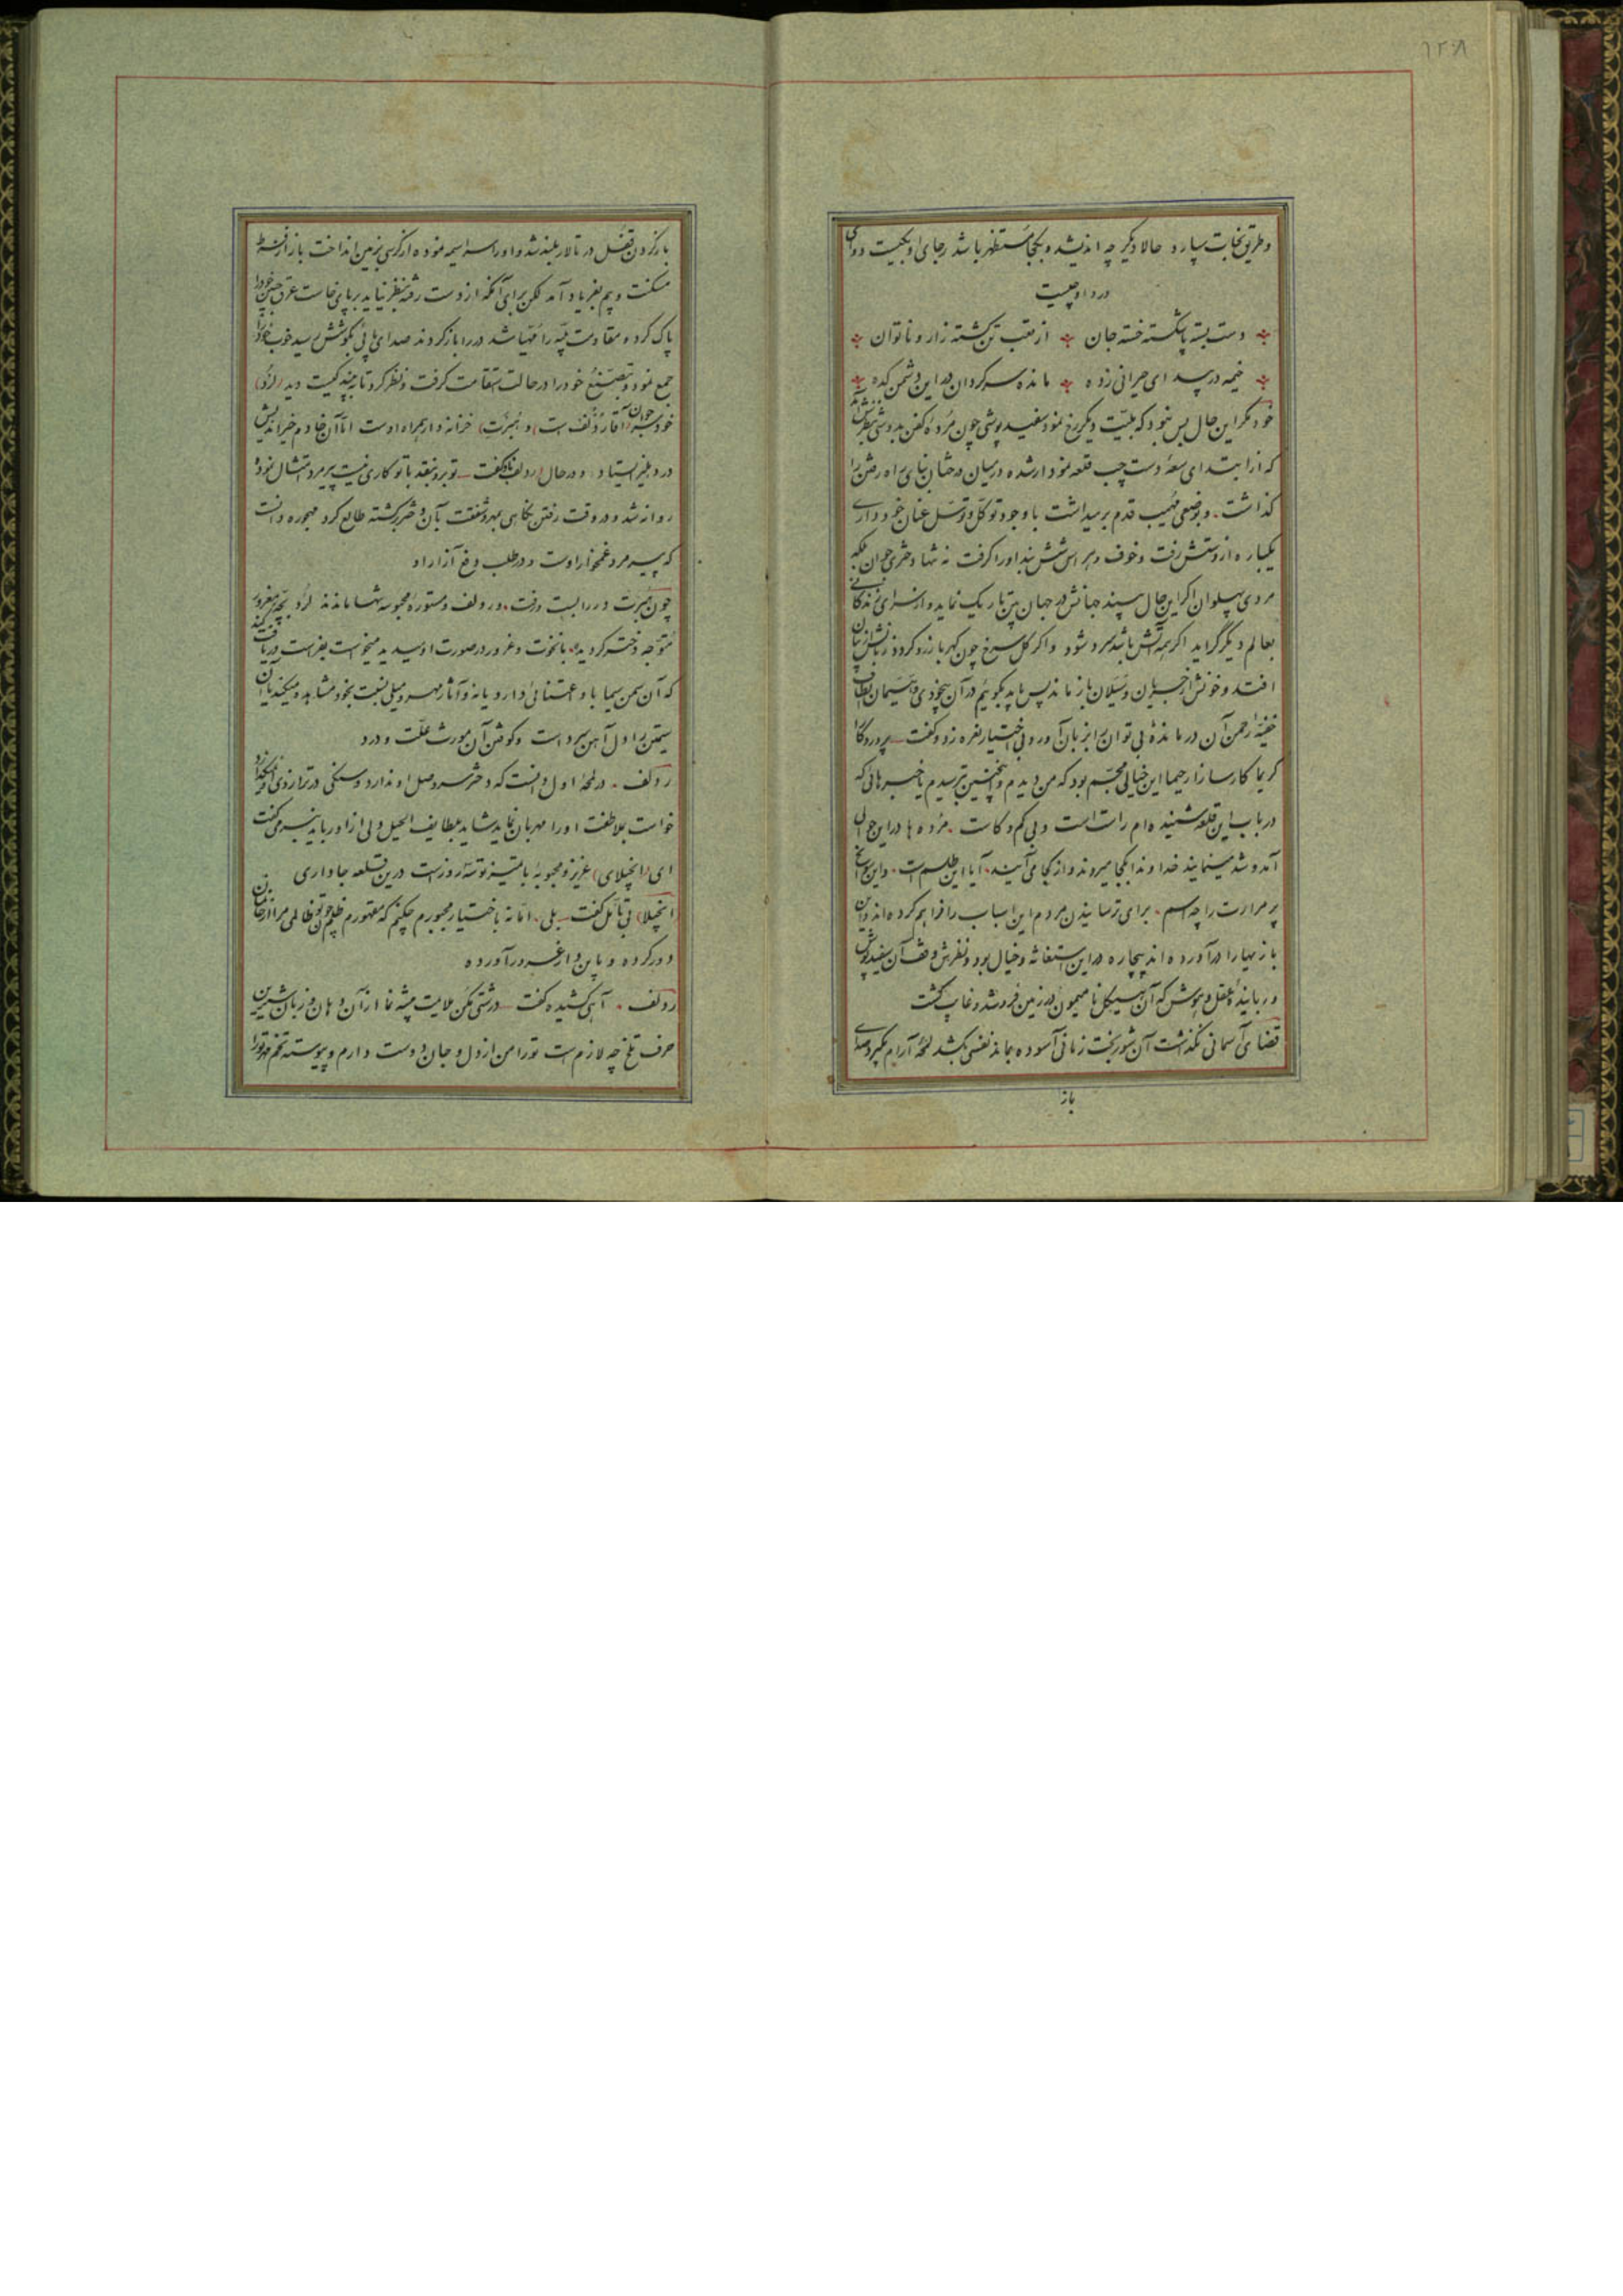 ۱۲۰۸
و طریق نجات سپارد حالا دیگر چه اندیشد و بکجا مستظهر باشد رجای او بکیست دوای
درد او چیست
دست بسته پا شکسته خسته جان از تعب تن گشته زار و ناتوان
خیمه در صحرای حیرانی زده مانده سرگردان در این دشمن کده
خود مگر این حال بس نبود که بلیّت دیگر رخ نمود سفید پوشی چون مردهٔ کفن بدوشی بنظرش آمد
که از ابتدای سعهٔ دست چپ قلعه نمودار شده در میان درختان بنای راه رفتن را
گذاشت و بوضعی مهیب قدم برمیداشت با وجود توکّل و توسّل عنان خودداری
یکباره از دستش رفت و خوف و هراس شش بند او را گرفت نه تنها دختری جوان بلکه
مردی پهلوان اگر این حال بیند جهانش در جهان بین تاریک نماید و از سرای زندگانی
بعالم دیگر گراید اگر همه آتش باشد سرد شود و اگر گل سرخ چون کهربا زرد گردد زبانش از بیان
افتد و خونش از جریان و سیلان باز ماند پس باید بگوئیم در آن بیخودی و بیم الطاف
خفیّهٔ رحمن آن درماندهٔ بی توان را بزبان آورد و بی اختیار نعره زد و گفت پروردگارا
کریما کارسازا رحیما این خیالی مجسّم بود که من دیدم و اینچنین ترسیدم یا خبرهائی که
در باب این قلعه شنیده ام راست است و بی کم و کاست مرده ها در این حوالی
آمد و شد مینمایند خداوندا بکجا میروند و از کجا می آیند آیا این طلسم است و این برج
پر مرارت را چه اسم برای ترسانیدن مردم این اسباب را فراهم کرده اند و این
بازیها را در آورده اند بیچاره در این استغاثه و خیال بود و نظرش وقف آن سفید پوش
و ربایندهٔ عقل و هوش که آن هیکل نامیمون در زمین فرو شد و غایب گشت
قضای آسمانی نگذاشت آن شوربخت زمانی آسوده بماند نفسی بکشد لمحهٔ آرام بگیرد صدای
باز
باز کردن قفل در تالار بلند شد و او را سراسیمه نموده از کرسی بزمین انداخت باز از فرط
مسکنت و بیم بفریاد آمد لکن برای آنکه از دست رفته بنظر نیاید برپای خاست عرق جبین خود را
پاک کرده مقاومت بلیّه را مهیا شد در را باز کردند صدای پائی بگوشش رسید خوب خود را
جمع نمود و بتصنّع خود را در حالت استقامت گرفت و نظر کرد تا ببیند کیست دید (لرد)
خودسر جوان آقا ردلف است و (هبرت) خزانه دار همراه اوست امّا آن خادم خیراندیش
در دهلیز ایستاد و در حال ردلف باو گفت تو برو بنقد با تو کاری نیست پیرمرد امتثال نموده
روانه شد و در وقت رفتن نگاهی بمهر و شفقت بآن دختر برگشته طالع کرد مهجوره دانست
که پیرمرد غمخوار اوست و در طلب رفع آزار او
چون هبرت در را بست و رفت و ردلف و مستوره محبوسه تنها ماندند لرد بچّهٔ مغرور
متوجّه دختر گردیده با نخوت و غرور در صورت او میدید میخواست بفراست دریافت کند
که آن سمن سیما با او اعتنائی دارد یا نه و آثار مهر و میلی نسبت بخود مشاهده میکند یا آن
سیمتن را دل آهن سرد است و کوفتن آن مورث علّت و درد
ردلف در لمحهٔ اول دانست که دختر سر وصل او ندارد و سنگی در ترازوی او نمیگذارد
خواست بملاطفت او را مهربان نماید شاید بلطایف الحیل دلی از او رباید بنرمی گفت
ای (انجیلای) عزیز و محبوبهٔ با تمیز تو سه روز است درین قلعه جا داری
(انجیلا) بی تأمّل گفت بلی امّا نه باختیار مجبورم چکنم که مقهورم ظلم چون تو ظالمی مرا از خانمان
دور کرده و باین دار غم در آورده
ردلف آهی کشیده گفت درشتی مکن ملایمت پیشه نما از آن دهان و زبان شیرین
حرف تلخ چه لازم است تو را من از دل و جان دوست دارم و پیوسته تخم مهر تو را